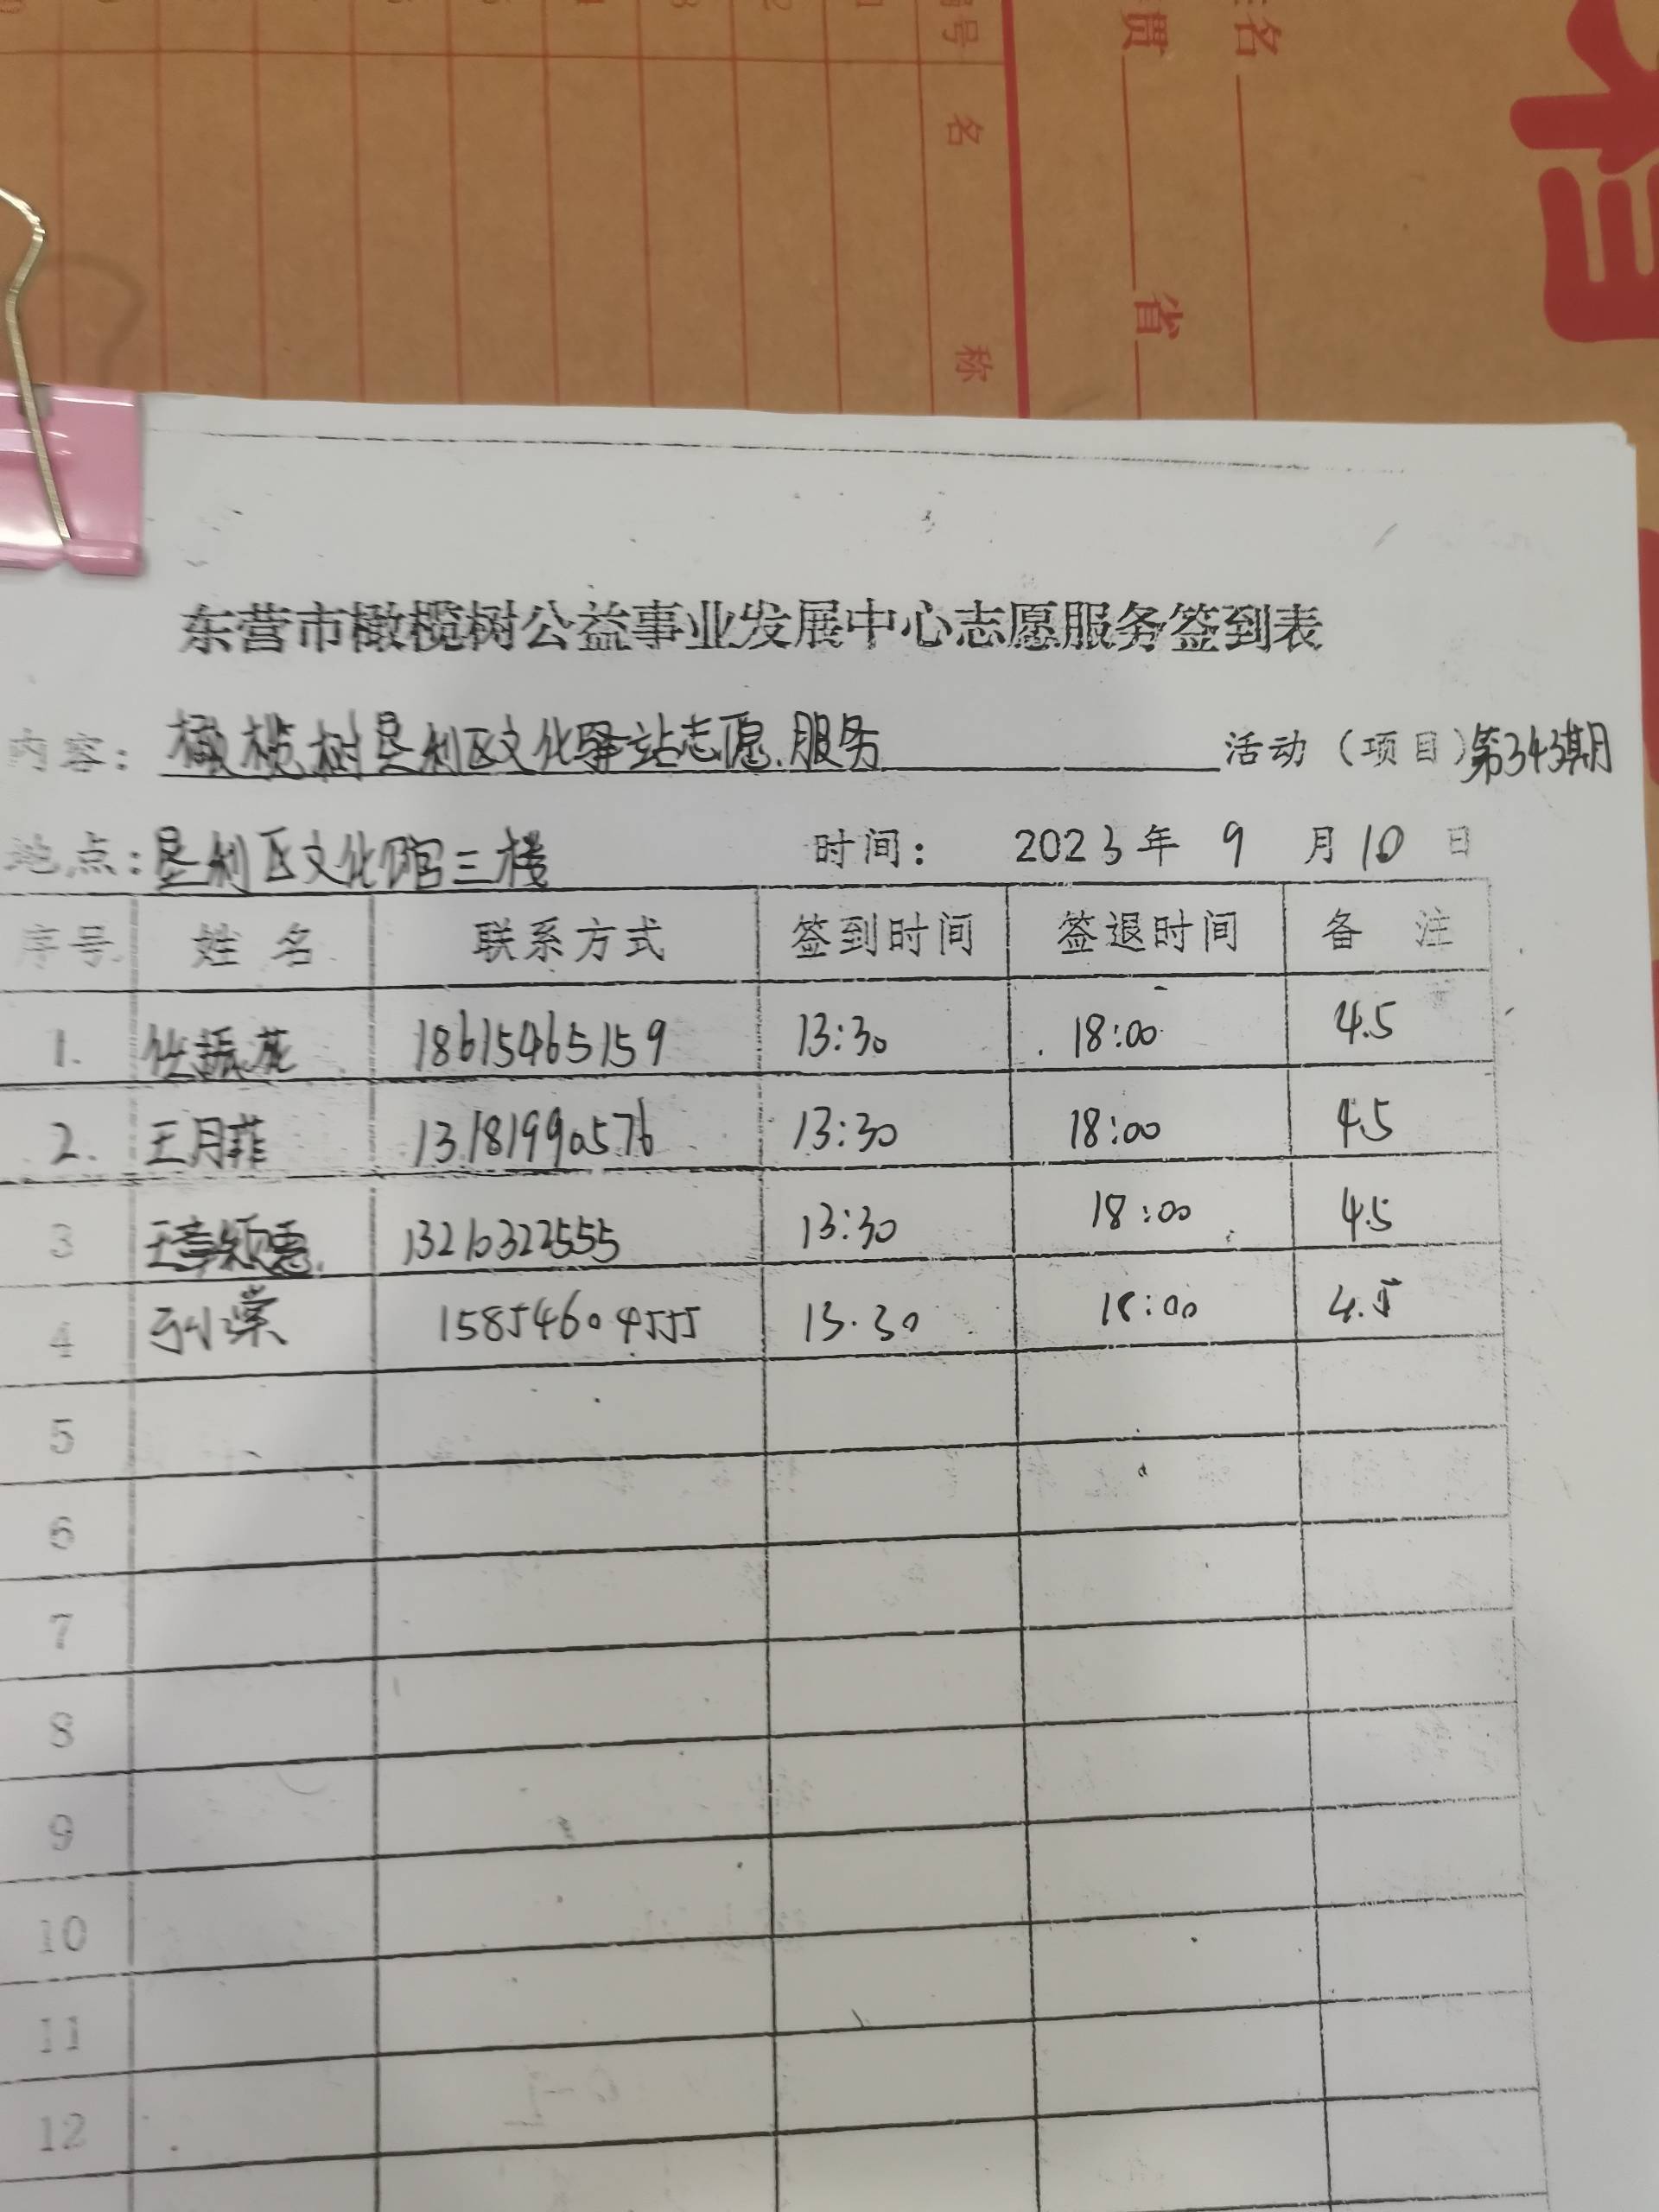 编号
名
称
贯
省
姓名
东营市橄榄树公益事业发展中心志愿服务签到表
内容：橄榄树垦利区文化驿站志愿服务 活动（项目）第343期
地点：垦利区文化馆三楼 时间： 2023年 9 月 10 日
序号 姓 名 联系方式 签到时间 签退时间 备 注
1. 18615465159 13:30 18:00 4.5
2. 王月菲 13181990576 13:30 18:00 4.5
3 13210322555 13:30 18:00 4.5
4 15854604555 13.30 18:00 4.5
5
6
7
8
9
10
11
12